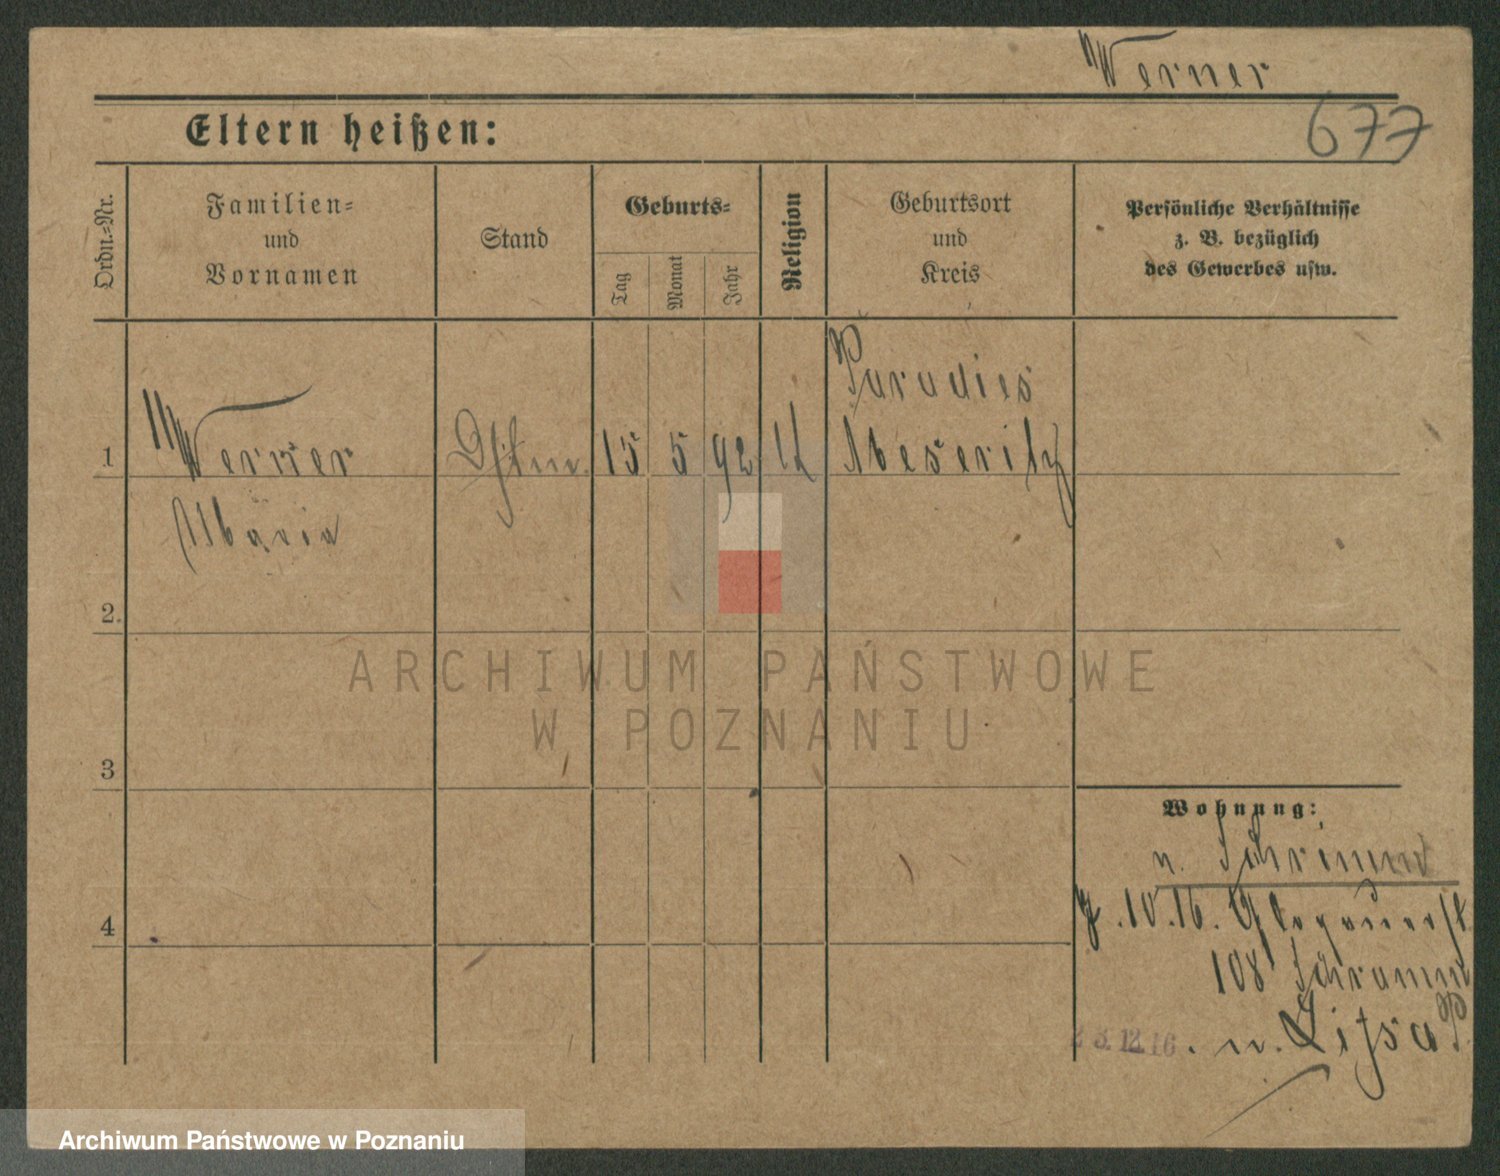 Werner
677
Eltern heißen:
Ordn.-Nr.
Familien-
und
Vornamen
Stand
Geburts-
Tag
Monat
Jahr
Religion
Geburtsort
und
Kreis
Persönliche Verhältnisse
z. B. bezüglich
des Gewerbes usw.
1 Werner 15 5 92 Paradies
Meseritz
Maria
2.
3
4
Wohnung:
n. Schrimm
10.16. Glogauerst
108 Schramm
23.12.16. n. Lissa P.
ARCHIWUM PAŃSTWOWE
W POZNANIU
Archiwum Państwowe w Poznaniu